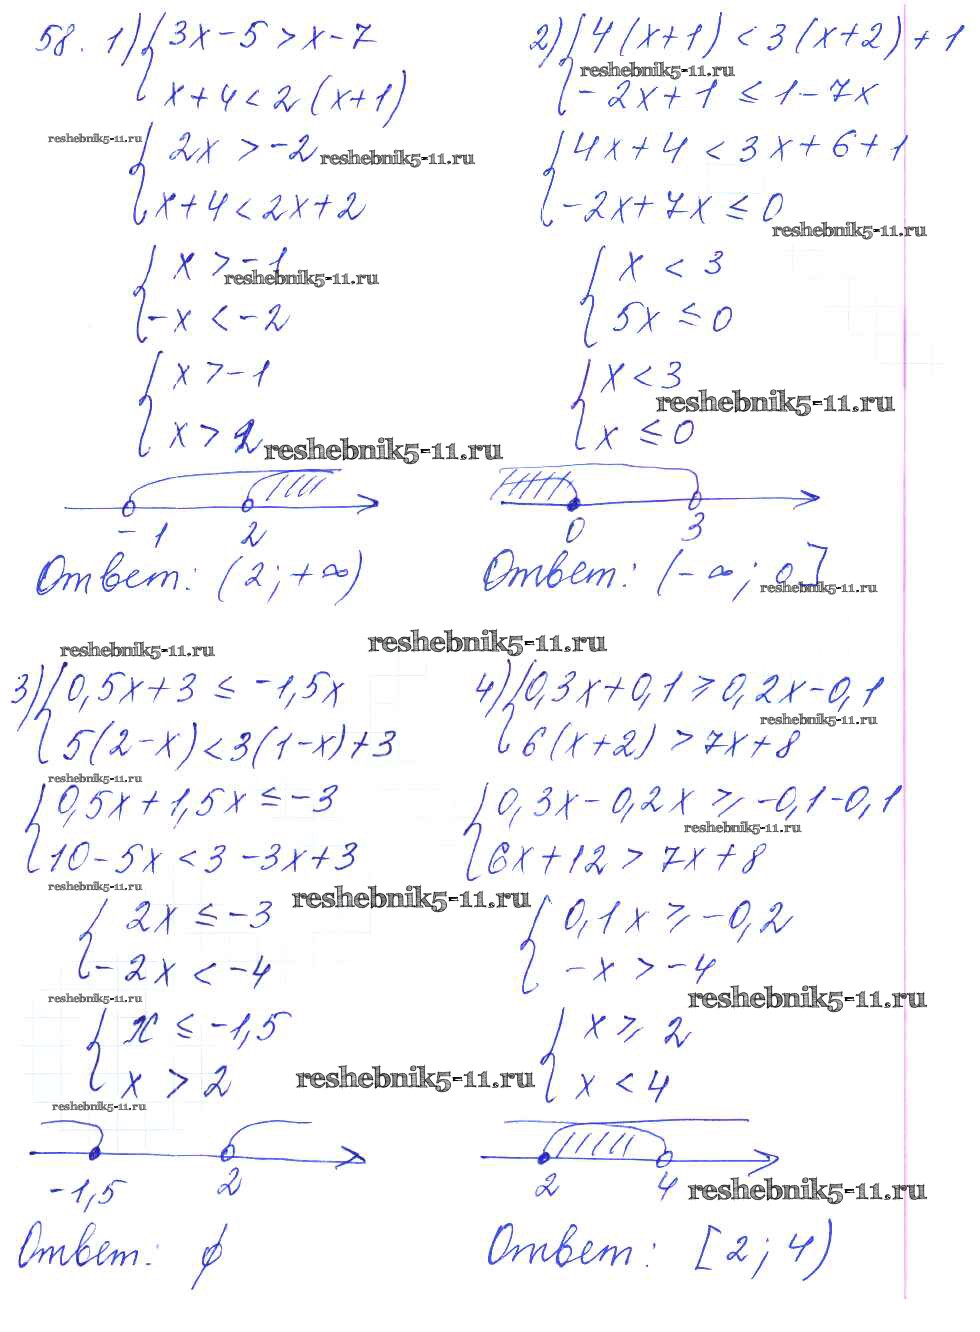 58. 1) { 3x - 5 > x - 7
x + 4 < 2 (x + 1)
reshebnik5-11.ru
{ 2x > -2
reshebnik5-11.ru
x + 4 < 2x + 2
{ x > -1
reshebnik5-11.ru
-x < -2
{ x > -1
x > 2
reshebnik5-11.ru
-1 2
Ответ: (2; +∞)
2) { 4(x+1) < 3(x+2) + 1
reshebnik5-11.ru
-2x + 1 ≤ 1 - 7x
{ 4x + 4 < 3x + 6 + 1
-2x + 7x ≤ 0
reshebnik5-11.ru
{ x < 3
5x ≤ 0
{ x < 3
reshebnik5-11.ru
x ≤ 0
0 3
Ответ: (-∞; 0]
reshebnik5-11.ru
reshebnik5-11.ru
reshebnik5-11.ru
3) { 0,5x + 3 ≤ -1,5x
5(2-x) < 3(1-x) + 3
reshebnik5-11.ru
{ 0,5x + 1,5x ≤ -3
10 - 5x < 3 - 3x + 3
reshebnik5-11.ru
reshebnik5-11.ru
{ 2x ≤ -3
-2x < -4
reshebnik5-11.ru
{ x ≤ -1,5
x > 2
reshebnik5-11.ru
reshebnik5-11.ru
-1,5 2
Ответ: ∅
4) { 0,3x + 0,1 ≥ 0,2x - 0,1
reshebnik5-11.ru
6(x+2) > 7x + 8
{ 0,3x - 0,2x ≥ -0,1 - 0,1
reshebnik5-11.ru
6x + 12 > 7x + 8
{ 0,1x ≥ -0,2
-x > -4
reshebnik5-11.ru
{ x ≥ 2
x < 4
2 4
reshebnik5-11.ru
Ответ: [2; 4)